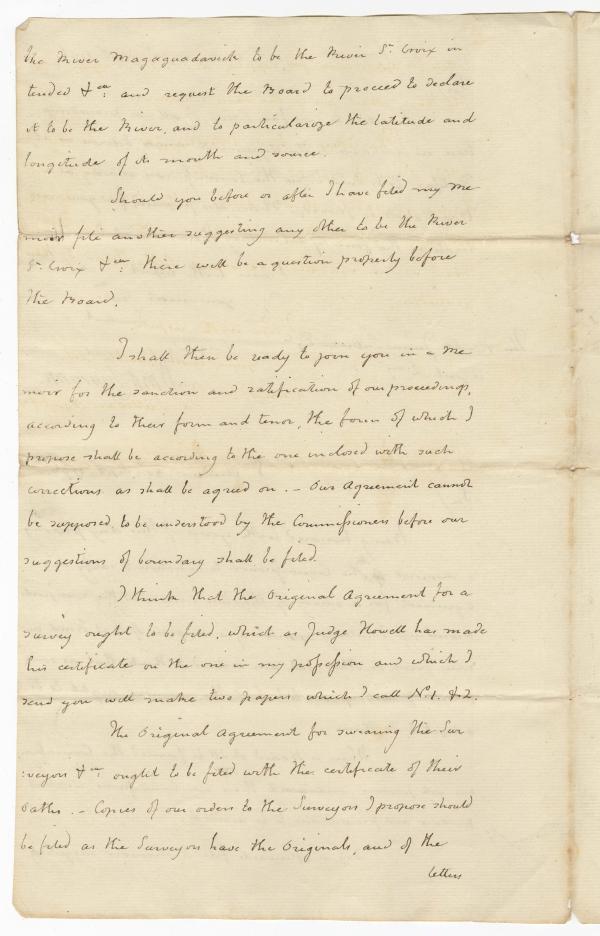 the River Magaguadavick to be the River St. Croix in
tended &ca: and request the Board to proceed to declare
it to be the River, and to particularize the latitude and
longitude of its mouth and source.
Should you before or after I have filed my Me
moir file another suggesting any other to be the River
St. Croix &ca: there will be a question properly before
the Board.
I shall then be ready to join you in a Me
moir for the sanction and ratification of our proceedings,
according to their form and tenor, the form of which I
propose shall be according to the one inclosed with such
corrections as shall be agreed on. – Our Agreement cannot
be supposed to be understood by the Commissioners before our
suggestions of boundary shall be filed.
I think that the Original Agreement for a
survey ought to be filed, which as Judge Howell has made
his certificate on the one in my possession and which I
send you will make two papers which I call No. 1. & 2.
The Original Agreement for swearing the Sur
:veyors &ca: ought to be filed with the certificate of their
Oaths. – Copies of our orders to the Surveyors I propose should
be filed as the Surveyors have the Originals, and of the
letters